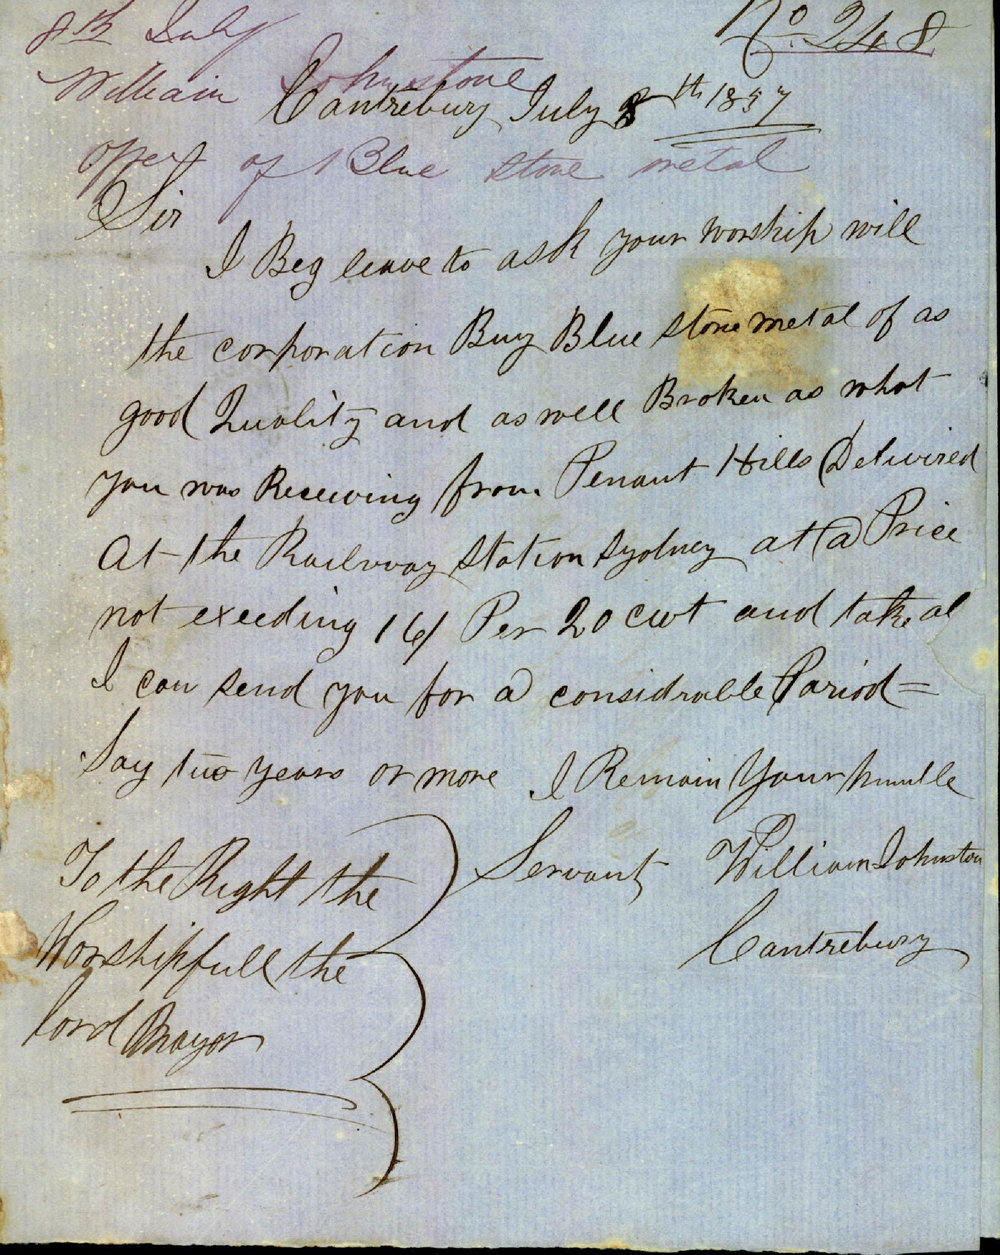 8th July
No. 248
William Johnstone
Cantrebury July 8th 1857
offer of Blue stone metal
Sir
I Beg leave to ask your worship will
the corporation Buy Blue stone metal of as
good Quality and as well Broken as what
you was Receiving from Penant Hills Delivired
At the Railway Station Sydney at a Price
not exeeding 16/ Per 20 cwt and take al
I can send you for a considrable Pariod =
Say two years or more I Remain Your humble
Servant William Johnston
Cantrebury
To the Right the
Worshipfull the
lord Mayor